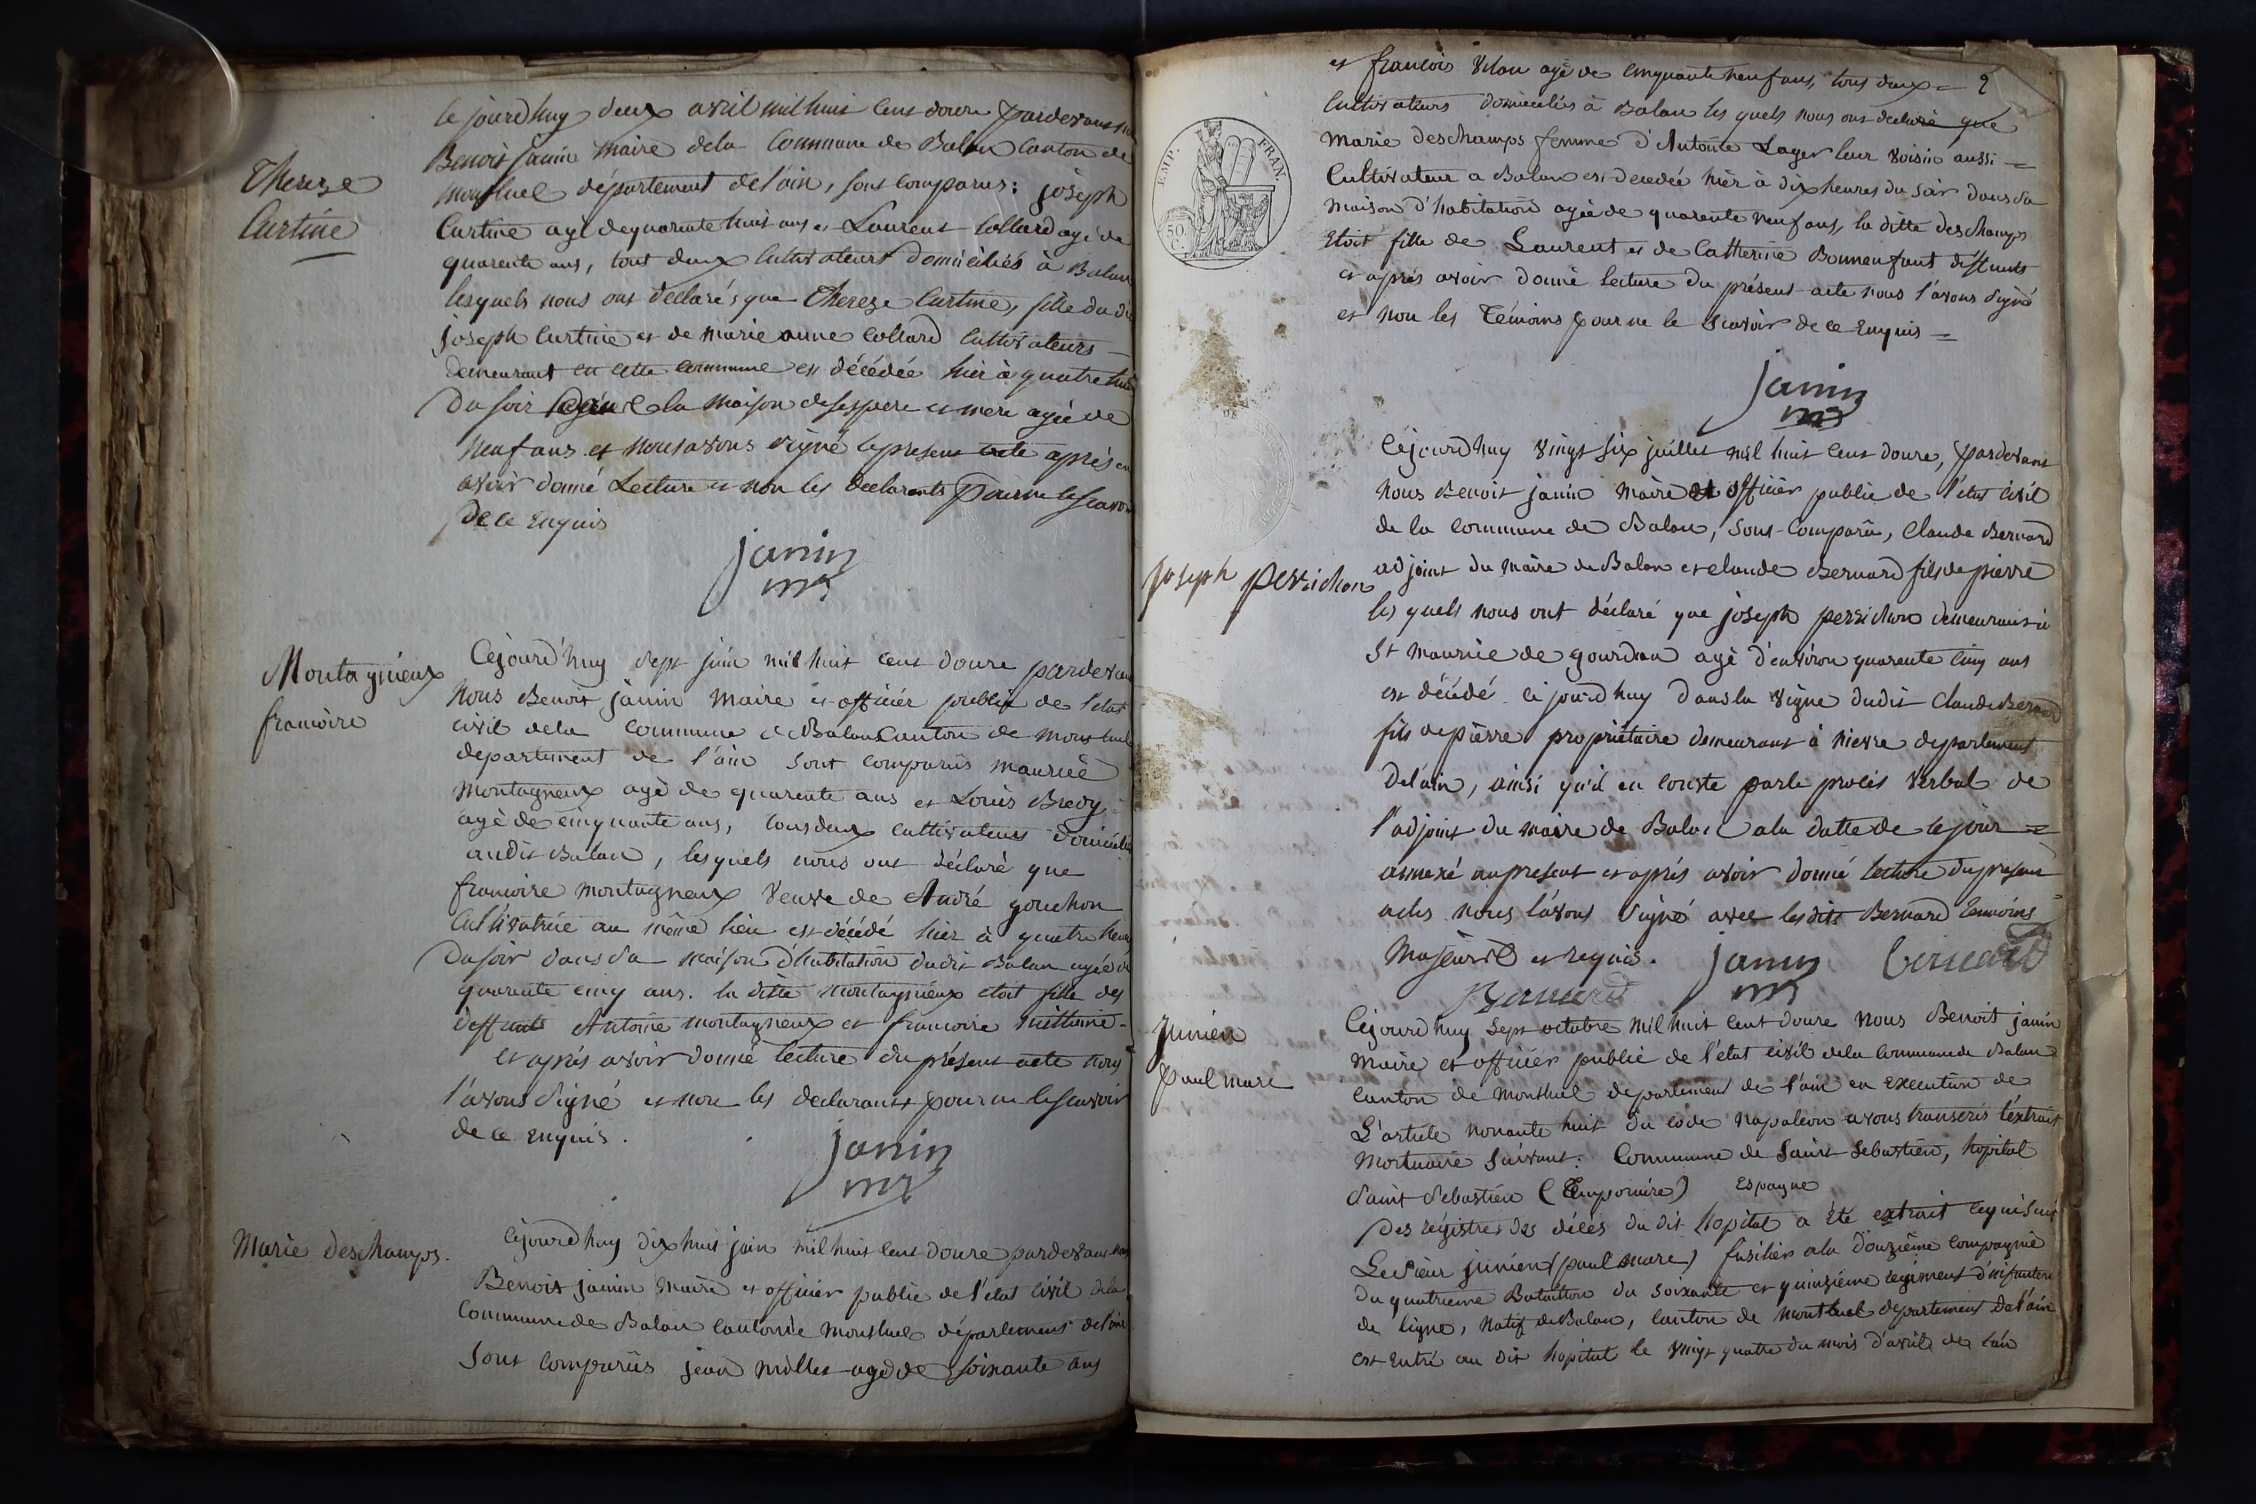 Therese
Curtine
le jourdhuy deux avril mil huit cent douze pardevant nous
Benoit janin maire dela Commune de Balan Canton de
montluel département de l'ain, sont comparus : joseph
Curtine agé de quarente huit ans et Laurent Collard agé de
quarente ans, tout deux Cultivateurs domiciliés à Balan
lesquels nous ont declarés que Therese Curtine, fille du dit
joseph Curtine et de marie anne Collard Cultivateurs
demeurant en cette commune est décédée hier à quatre heures
du soir la maison de ses pere et mere agée de
neuf ans et nous avons signé le present acte après en
avoir donné Lecture et non les declarants pour ne le scavoir
de ce enquis
janin
mre
Montagnieux
francoise
Cejourd'huy sept juin mil huit cent douze pardevant
nous Benoit janin maire et officier public de l'etat
civil dela commune de Balan Canton de montluel
departement de l'ain sont comparus maurice
montagneux agé de quarente ans et Louis Brevy
agé de cinquante ans, tous deux cultivateurs domiciliés
audit Balan, lesquels nous ont déclaré que
francoise montagneux veuve de André gouchon
Cultivatrice au même lieu est décédé hier à quatre heures
du soir dans sa maison d'habitation dudit Balan agée de
quarente cinq ans. la ditte montagnieux etoit fille des
deffunts Antoine montagneux et francoise
et après avoir donné lecture du présent acte nous
l'avons signé et non les declarants pour ne le scavoir
de ce enquis.
janin
mre
Marie deschamps.
Cejourdhuy dix huit juin mil huit cent douze pardevant nous
Benoit janin maire et officier public de l'état civil dela
Commune de Balan canton de montluel département de l'ain
sont comparus jean millet agé de soixante ans
2
et francois Vilon agé de cinquante neuf ans, tous deux =
Cultivateurs domiciliés à Balan les quels nous ont declaré que
marie deschamps femme d'Antoine Lager leur voisin aussi =
Cultivateur a Balan est decedée hier à dix heures du soir dans sa
maison d'habitation agée de quarente neuf ans, la ditte deschamps
etoit fille de Laurent et de Catherine Bonnenfant deffunts
et après avoir donné lecture du présent acte nous l'avons signé
et non les Témoins pour ne le scavoir de ce enquis =
EMP. FRAN.
50
C.
janin
mre
joseph perrichon
Cejourdhuy vingt six juillet mil huit cent douze, pardevant
nous Benoit janin maire et officier public de l'etat civil
de la commune de Balan, sont comparu, Claude Bernard
adjoint du maire de Balan et claude Bernard fils de pierre
les quels nous ont déclaré que joseph perrichon demeurant à
St maurice de gourdan agé d'environ quarente cinq ans
est décédé ce jourdhuy dans la vigne dudit Claude Bernard
fils de pierre propriétaire demeurant à nievre departement
de l'ain, ainsi qu'il en conste par le procès verbal de
l'adjoint du maire de Balan a la datte de ce jour =
annexé au present et après avoir donné lecture du present
actes nous l'avons signé avec lesdits Bernard temoins
majeurs et requis. janin Bernard
Bernard mre
junien
paul marc
Cejourdhuy sept octobre mil huit cent douze nous Benoit janin
maire et officier public de l'état civil dela Commune de Balan
canton de montluel departement de l'ain en execution de
L'article nonante huit du code napoleon avons transcris l'extrait
mortuaire suivant : Commune de Saint Sebastien, hopital
Saint Sebastien (Temporaire) Espagne
Des régistres des décès du dit hopital a été extrait ce qui suit
Le Sieur junien (paul marc) fusilier a la douzième compagnie
du quatrieme Bataillon du soixante et quinzième regiment d'infanterie
de ligne, natif de Balan, canton de montluel departement de l'ain
est entré au dit hopital le vingt quatre du mois d'avril de l'an